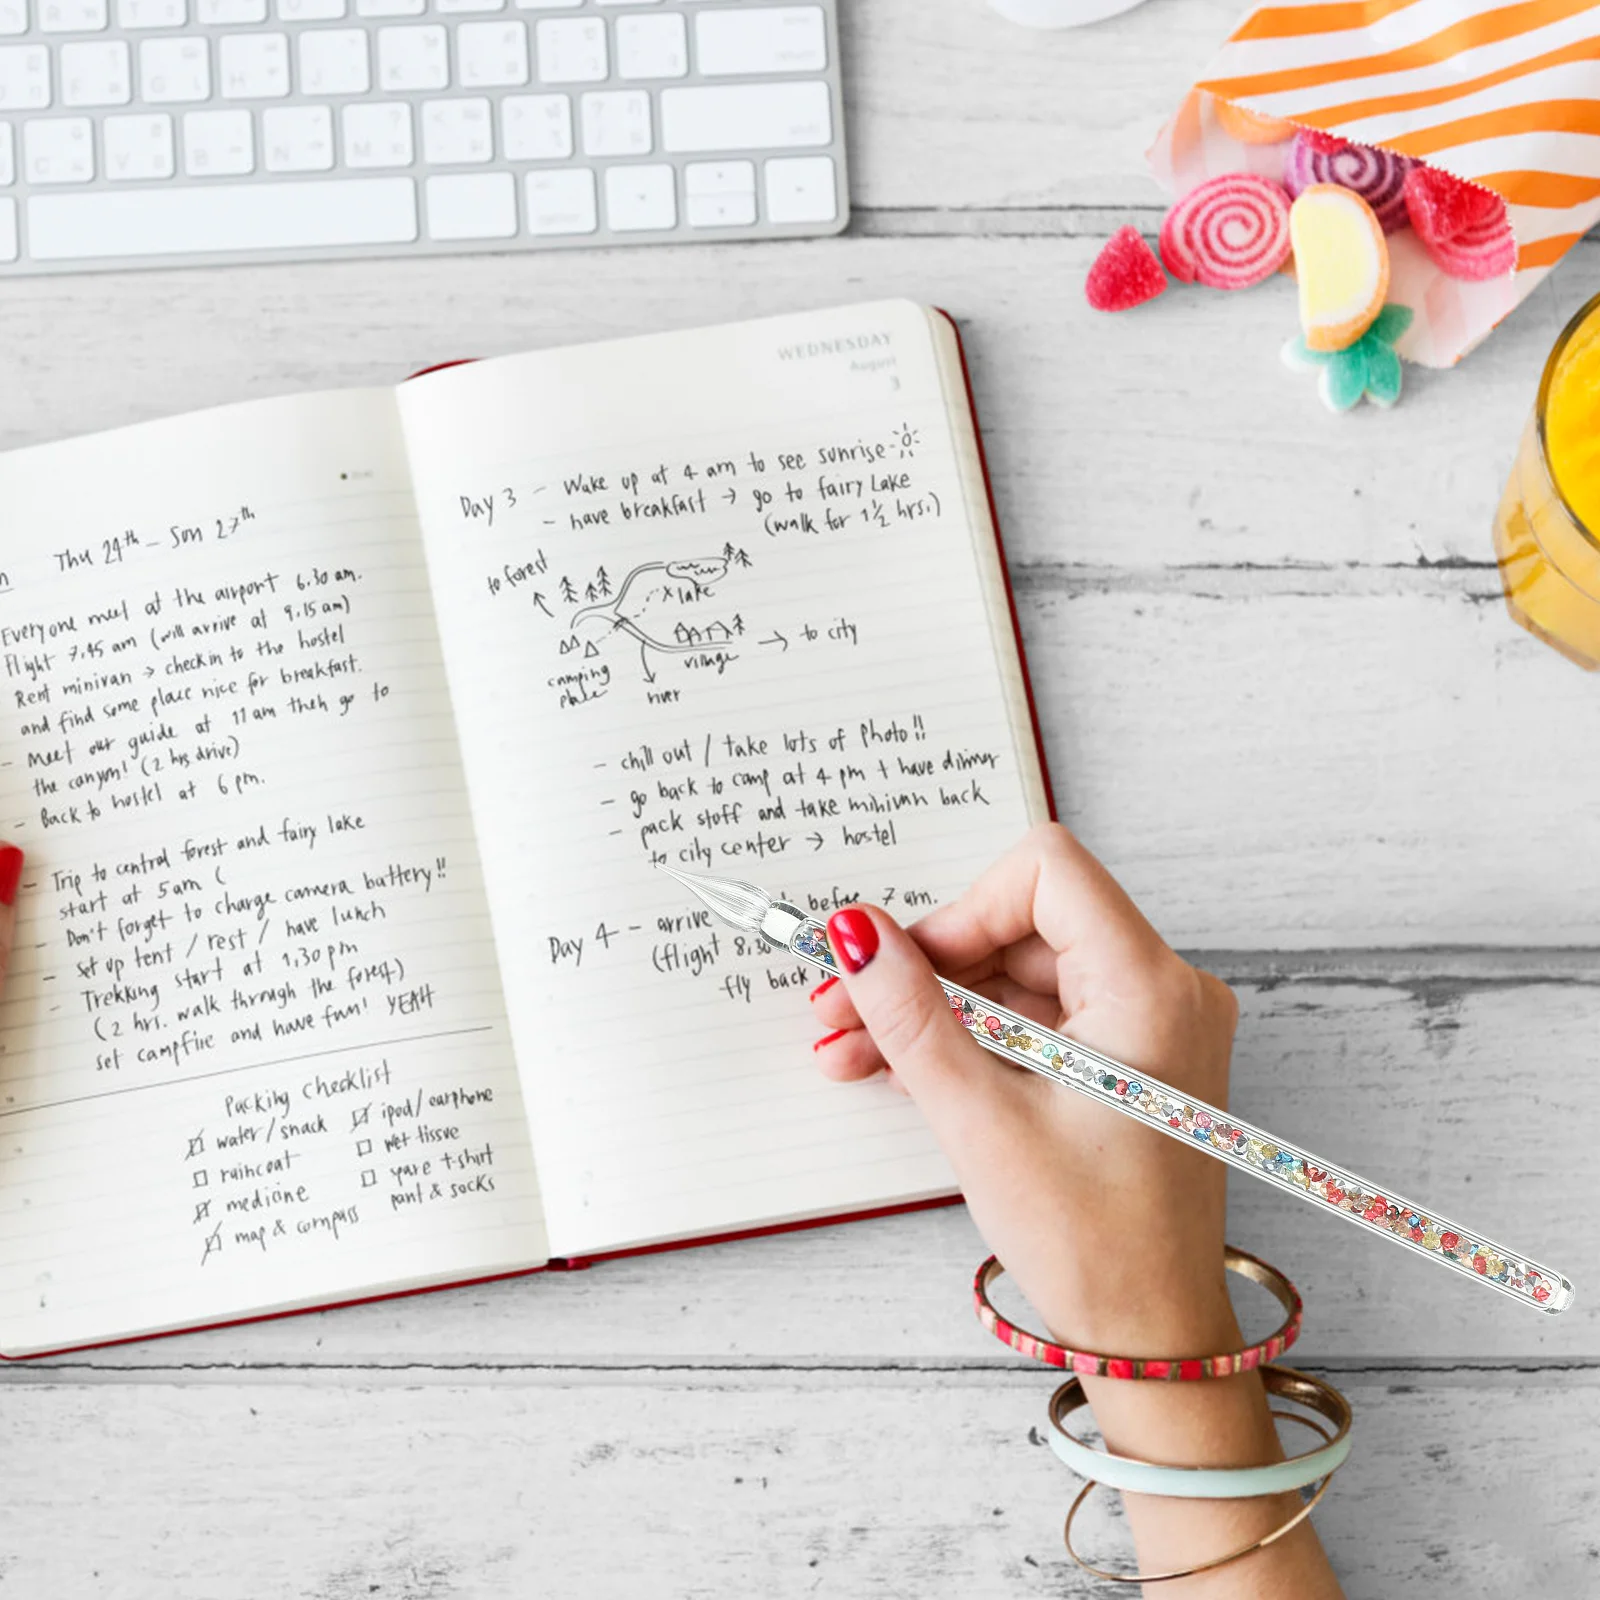 Thu 24th – Sun 27th
Everyone meet at the airport 6.30 am.
Flight 7.45 am (will arrive at 9.15 am)
Rent minivan → checkin to the hostel
and find some place nice for breakfast.
- Meet our guide at 11 am then go to
the canyon! (2 hrs drive)
- Back to hostel at 6 pm.
- Trip to central forest and fairy lake
start at 5 am (
- Don't forget to charge camera battery!!
- Set up tent / rest / have lunch
- Trekking start at 1.30 pm
(2 hrs. walk through the forest)
set campfire and have fun! YEAH
Packing checklist
water/snack
raincoat
medicine
map & compass
ipod/earphone
wet tissue
spare t-shirt
pant & socks
WEDNESDAY
August
3
Day 3 - Wake up at 4 am to see sunrise
- have breakfast → go to fairy Lake
(walk for 1½ hrs.)
to forest
x lake
camping
place
village
→ to city
river
- chill out / take lots of photo!!
- go back to camp at 4 pm + have dinner
- pack stuff and take minivan back
to city center → hostel
Day 4 - arrive before 7 am.
(flight 8.30
fly back